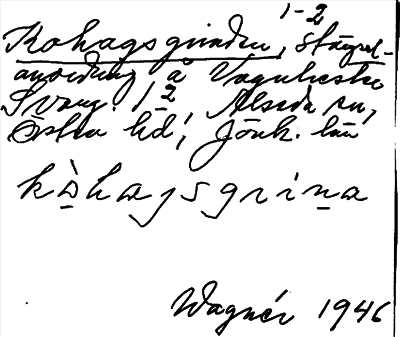 1-2
Kohagsgrinden, stängsel-
anordning å Vagnhester
Svang. 1 2 Alseda sn,
Östra hd, Jönk. län
kòhagsgrina
Wagnér 1946